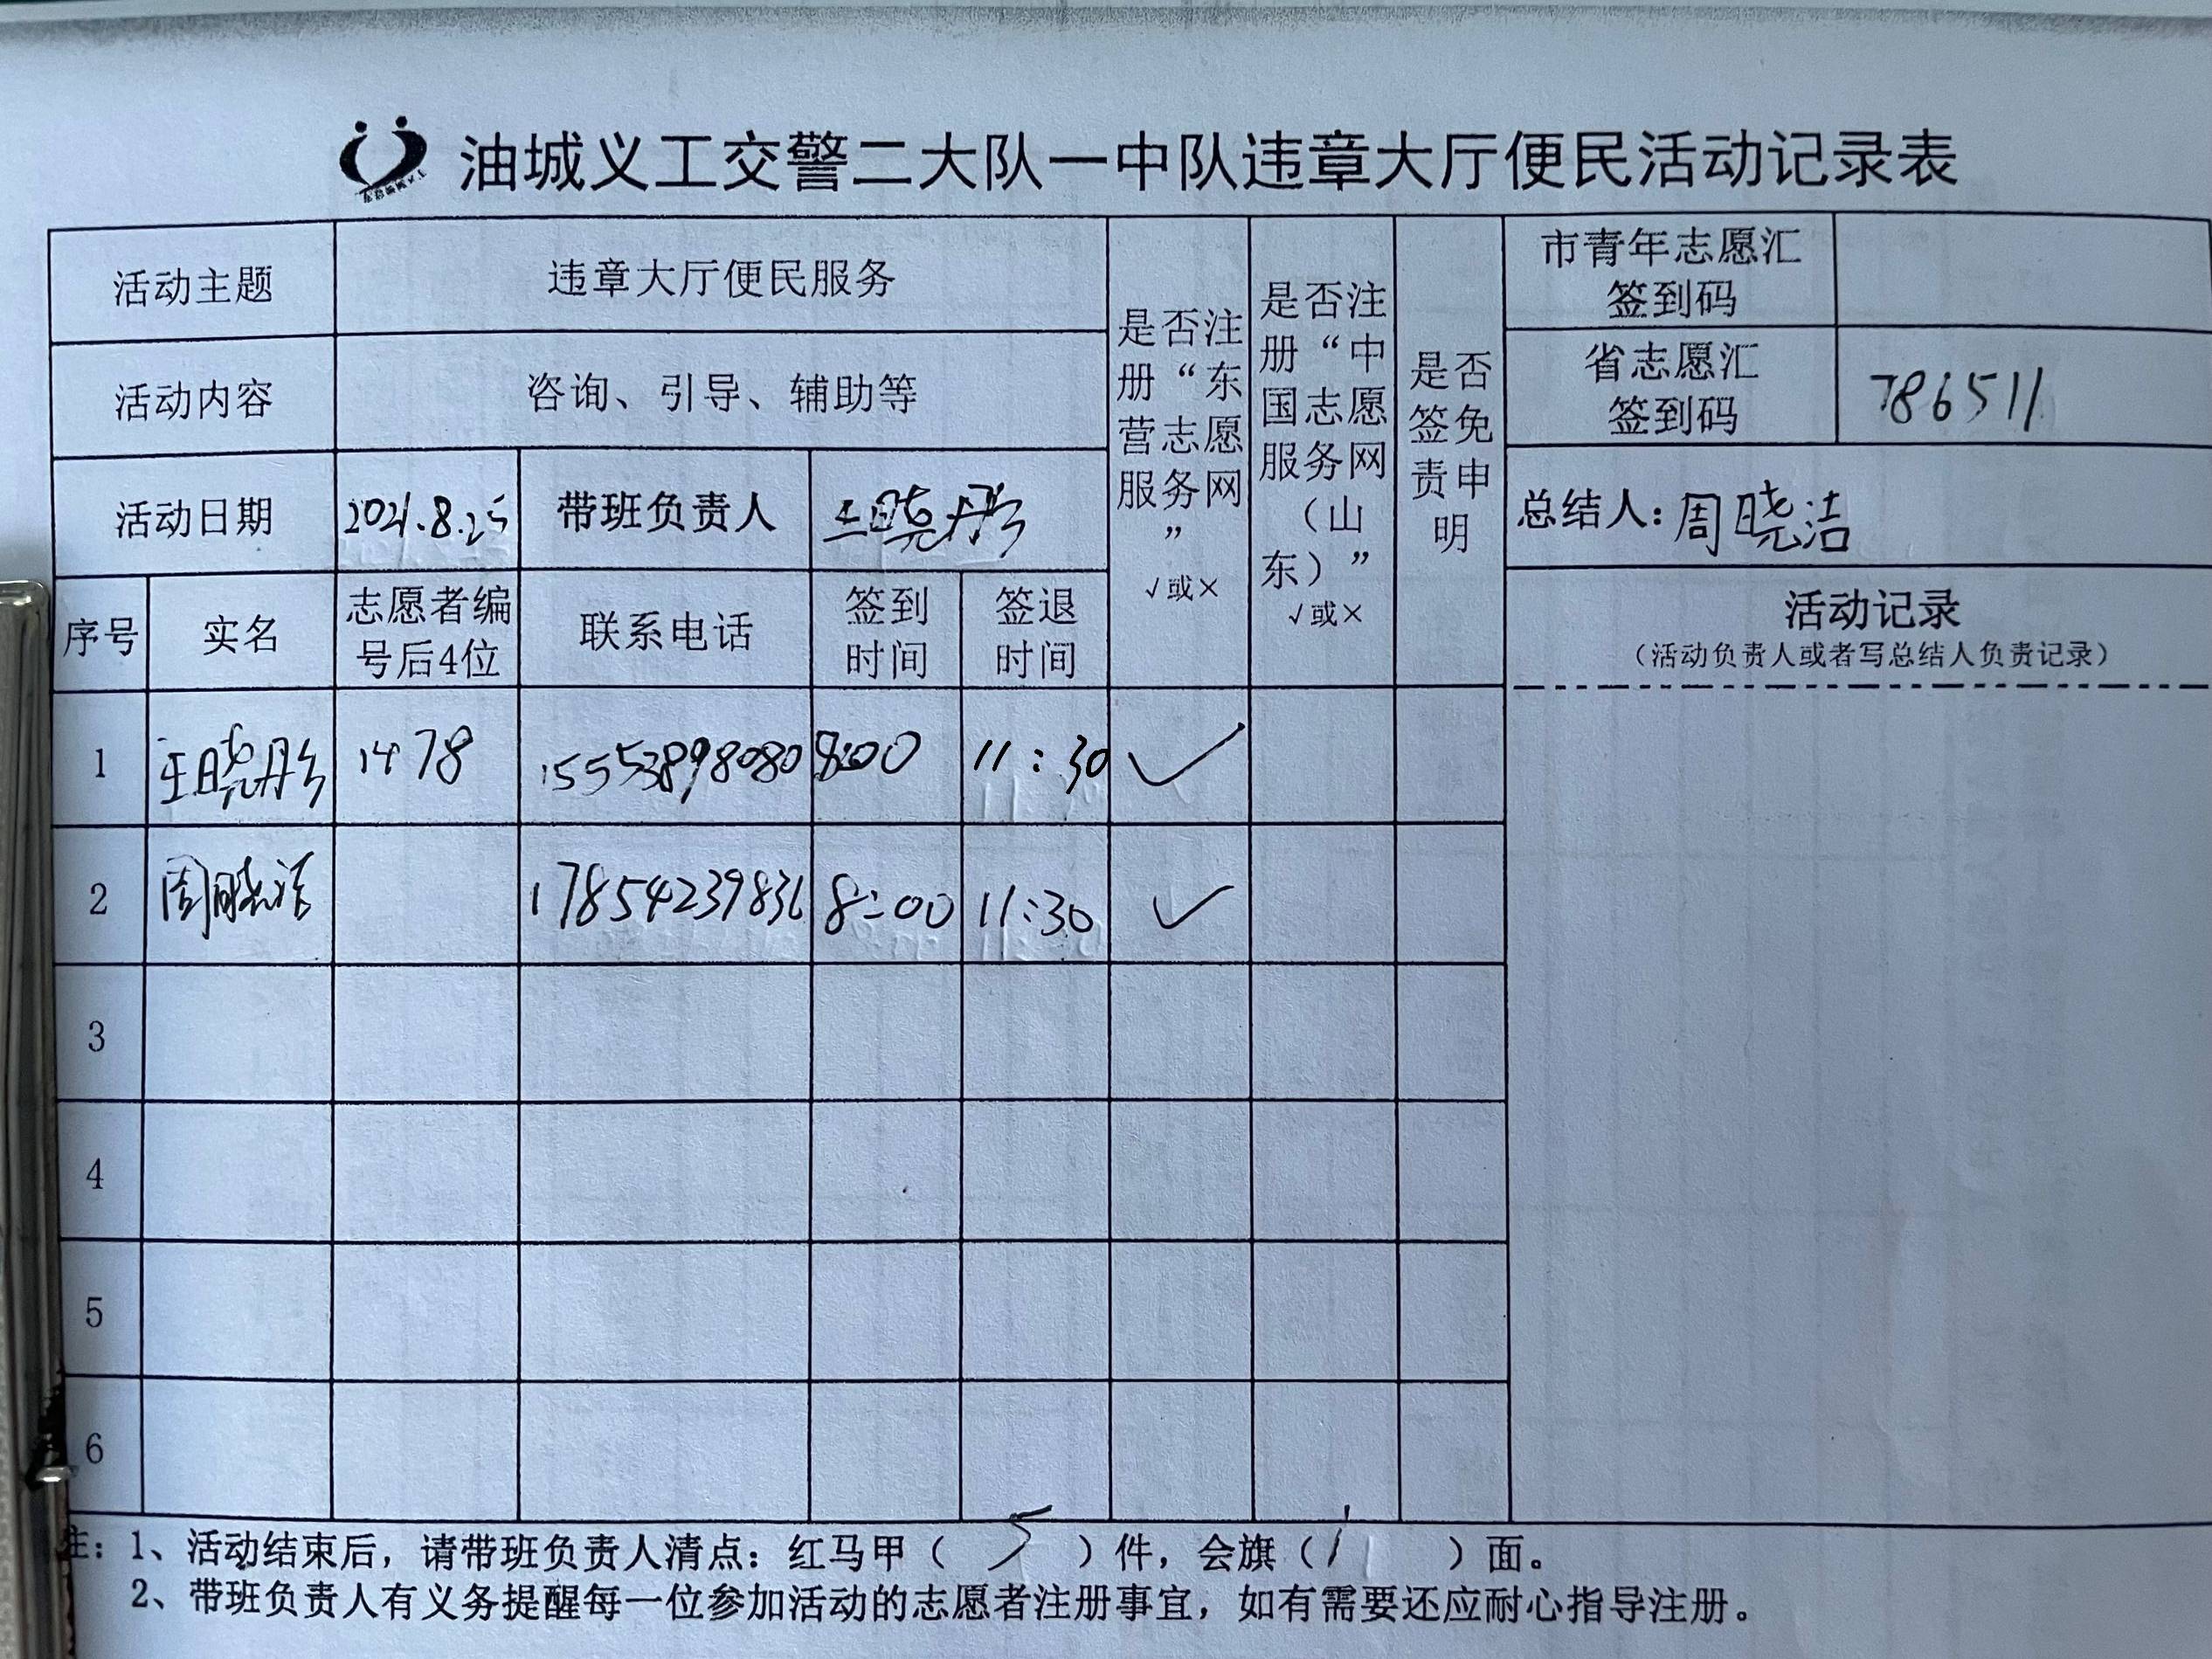 油城义工交警二大队一中队违章大厅便民活动记录表
活动主题 违章大厅便民服务
活动内容 咨询、引导、辅助等
活动日期 2021.8.25 带班负责人 王晓彤
是否注册“东营志愿服务网” √或×
是否注册“中国志愿服务网（山东）” √或×
是否签免责申明
市青年志愿汇签到码
省志愿汇签到码 786511
总结人：周晓洁
序号 实名 志愿者编号后4位 联系电话 签到时间 签退时间
活动记录
（活动负责人或者写总结人负责记录）
1 王晓彤 1478 15553898080 8:00 11:30 ✓
2 周晓洁 17854239836 8:00 11:30 ✓
3
4
5
6
注：1、活动结束后，请带班负责人清点：红马甲（5）件，会旗（1）面。
2、带班负责人有义务提醒每一位参加活动的志愿者注册事宜，如有需要还应耐心指导注册。